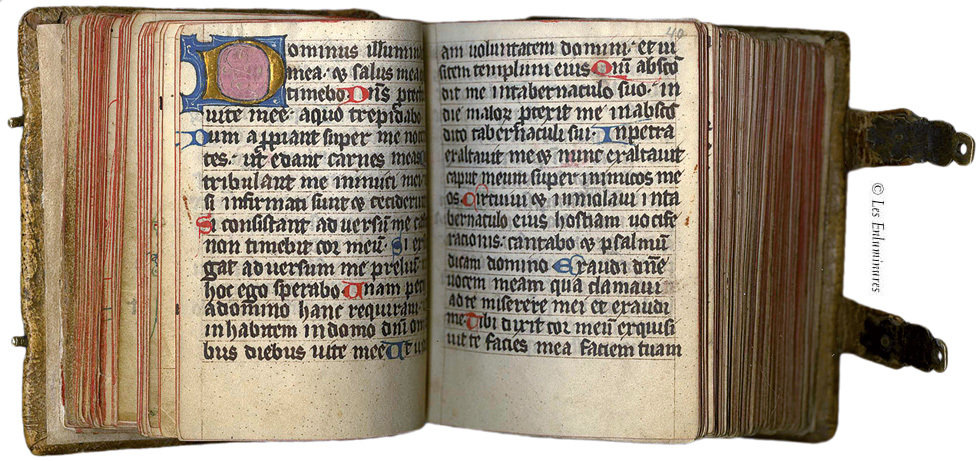 Dominus illumin
mea· & salus mea
timebo Dn̄s prote
uite mee· a quo trepidabo
Dum appiant super me noce
tes· ut edant carnes meas
tribulant me inimici mei
si infirmati sunt & ceciderut
Si consistant aduersū me cas
non timebit cor meū· Si ex
gat aduersum me preliū·
hoc ego sperabo Unam peti
a domīno hanc requiram·
inhabitem in domo dn̄i om
bus diebus uite mee Ut ui
40
am uoluntatem domini· et ui
sitem templum eius Qm̄ absco
dit me in tabernaculo suo· in
die malor pterit me in absco
dito tabernaculi sui· In petra
exaltauit me & nunc exaltauit
caput meum super inimicos me
os· Circuiui & inmolaui in ta
bernaculo eius hostiam uocife
racionis· cantabo & psalmū
dicam domino Exaudi dn̄e
uocem meam qua clamaui
ad te miserere mei et exaudi
me· Tibi dixit cor meū exquisi
uit te facies mea faciem tuam
© Les Enluminures